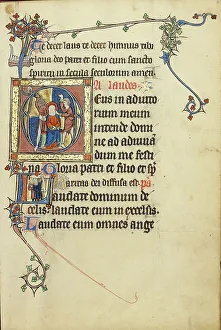 Te decet laus te decet himnus tibi
gloria deo patri et filio cum sancto
spiritu in secula seculorum amen
A laudes
Deus in adiuto
rium meum
intende domi
ne ad adiuvan
dum me festi
na Gloria patri et filio
caritas dei diffusa est
Laudate dominum de
celis laudate eum in excelsis
Laudate eum omnes ange